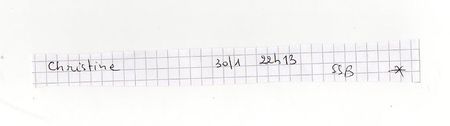 Christine 30/1 22h13 SSB *